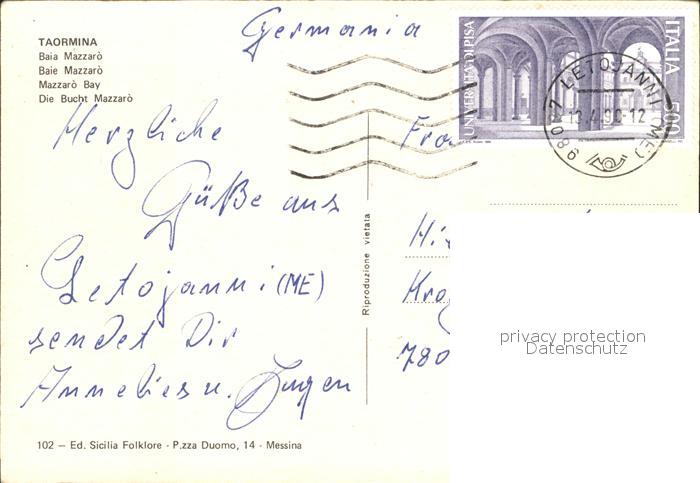 Germania
TAORMINA
Baia Mazzarò
Baie Mazzarò
Mazzarò Bay
Die Bucht Mazzarò
UNIVERSITÀ DI PISA
ITALIA
500
98037 LETOJANNI (ME)
Herzliche
Grüße aus
Letojanni (ME)
sendet Dir
Annelies u. Jürgen
Riproduzione vietata
780
privacy protection
Datenschutz
102 — Ed. Sicilia Folklore - P.zza Duomo, 14 - Messina